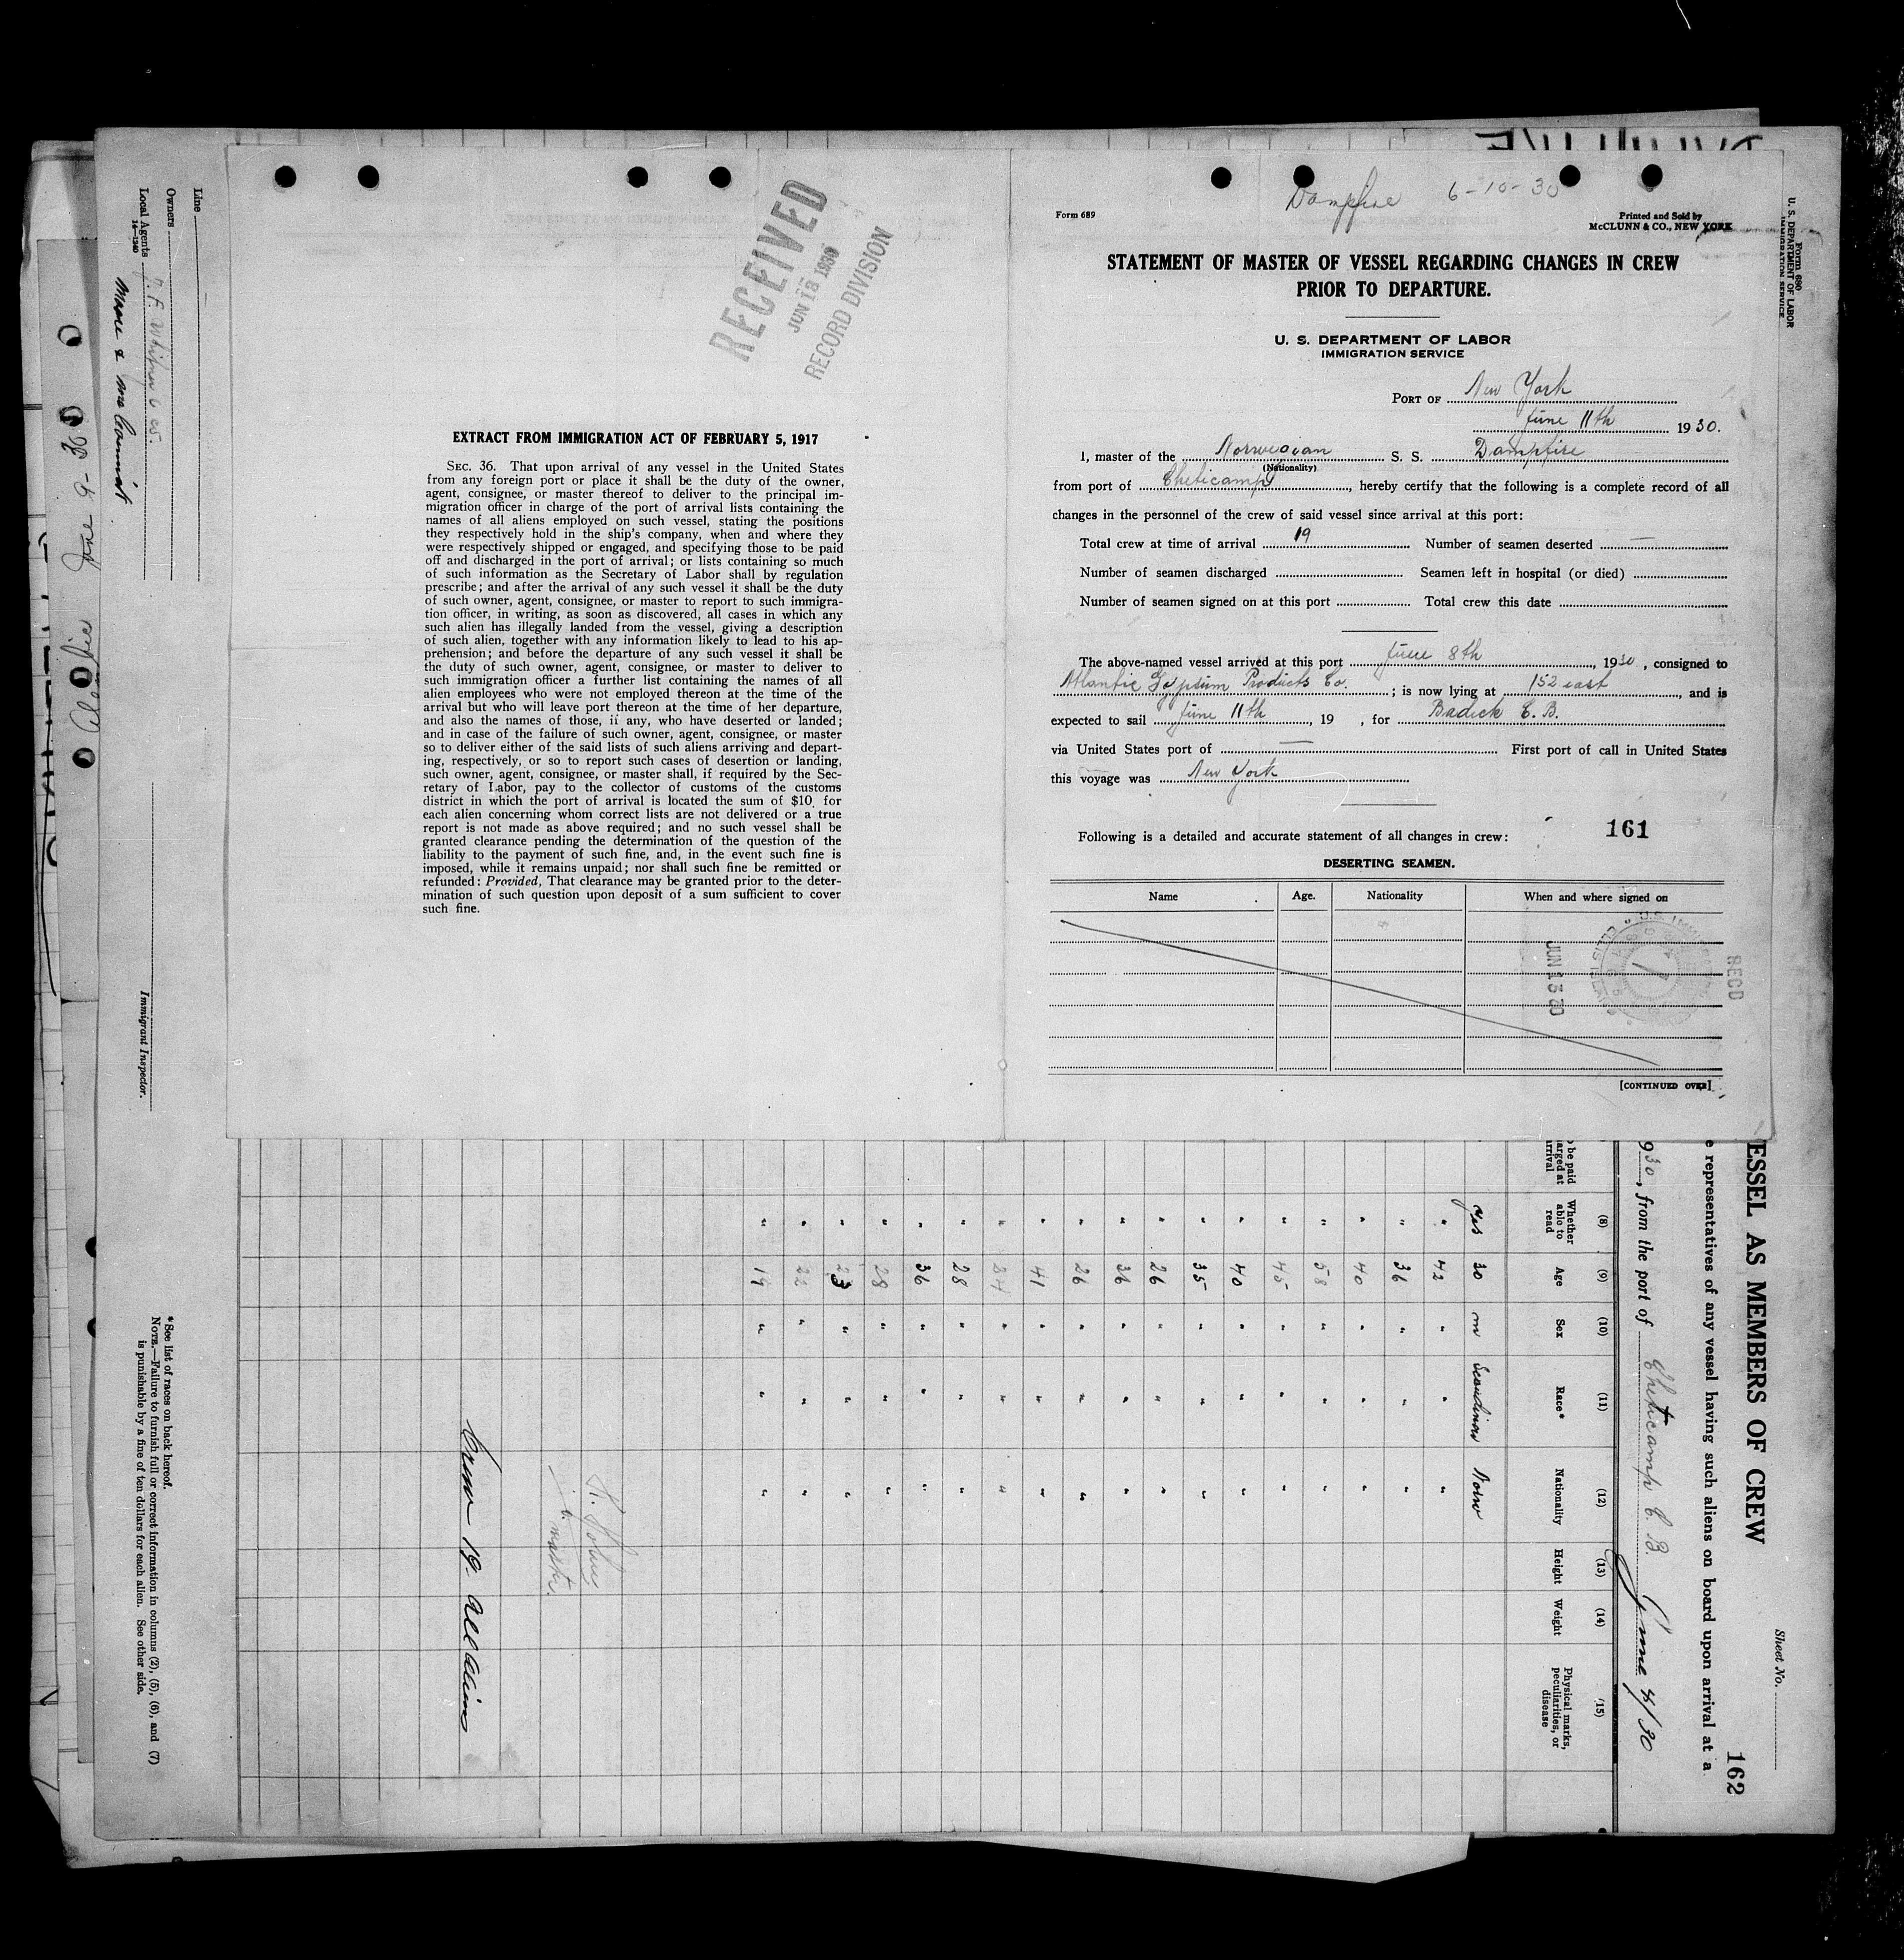 RECEIVED
JUN 18 1930
RECORD DIVISION
EXTRACT FROM IMMIGRATION ACT OF FEBRUARY 5, 1917
SEC. 36. That upon arrival of any vessel in the United States
from any foreign port or place it shall be the duty of the owner,
agent, consignee, or master thereof to deliver to the principal im-
migration officer in charge of the port of arrival lists containing the
names of all aliens employed on such vessel, stating the positions
they respectively hold in the ship's company, when and where they
were respectively shipped or engaged, and specifying those to be paid
off and discharged in the port of arrival; or lists containing so much
of such information as the Secretary of Labor shall by regulation
prescribe; and after the arrival of any such vessel it shall be the duty
of such owner, agent, consignee, or master to report to such immigra-
tion officer, in writing, as soon as discovered, all cases in which any
such alien has illegally landed from the vessel, giving a description
of such alien, together with any information likely to lead to his ap-
prehension; and before the departure of any such vessel it shall be
the duty of such owner, agent, consignee, or master to deliver to
such immigration officer a further list containing the names of all
alien employees who were not employed thereon at the time of the
arrival but who will leave port thereon at the time of her departure,
and also the names of those, if any, who have deserted or landed;
and in case of the failure of such owner, agent, consignee, or master
so to deliver either of the said lists of such aliens arriving and depart-
ing, respectively, or so to report such cases of desertion or landing,
such owner, agent, consignee, or master shall, if required by the Sec-
retary of Labor, pay to the collector of customs of the customs
district in which the port of arrival is located the sum of $10 for
each alien concerning whom correct lists are not delivered or a true
report is not made as above required; and no such vessel shall be
granted clearance pending the determination of the question of the
liability to the payment of such fine, and, in the event such fine is
imposed, while it remains unpaid; nor shall such fine be remitted or
refunded: Provided, That clearance may be granted prior to the deter-
mination of such question upon deposit of a sum sufficient to cover
such fine.
Dampfire 6-10-30
Form 689
Printed and Sold by
McCLUNN & CO., NEW YORK
STATEMENT OF MASTER OF VESSEL REGARDING CHANGES IN CREW
PRIOR TO DEPARTURE.
U. S. DEPARTMENT OF LABOR
IMMIGRATION SERVICE
PORT OF New York
June 11th 1930.
I, master of the Norwegian S. S. Dampfire
(Nationality)
from port of Cheticamp, hereby certify that the following is a complete record of all
changes in the personnel of the crew of said vessel since arrival at this port:
Total crew at time of arrival 19 Number of seamen deserted —
Number of seamen discharged Seamen left in hospital (or died)
Number of seamen signed on at this port Total crew this date
The above-named vessel arrived at this port June 8th, 1930, consigned to
Atlantic Gypsum Products Co.; is now lying at 152 east, and is
expected to sail June 11th, 19 , for Badick C. B.
via United States port of — First port of call in United States
this voyage was New York
Following is a detailed and accurate statement of all changes in crew: 161
DESERTING SEAMEN.
Name Age. Nationality When and where signed on
JUN 13 30
REC'D
[CONTINUED OVER]
Form 680
U. S. DEPARTMENT OF LABOR
IMMIGRATION SERVICE
Sheet No.
162
ESSEL AS MEMBERS OF CREW
e representatives of any vessel having such aliens on board upon arrival at a
930, from the port of Cheticamp C. B. June 4/30
(8) (9) (10) (11) (12) (13) (14) (15)
Whether able to read Age Sex Race* Nationality Height Weight Physical marks, peculiarities, or disease
yes 30 m Scandinav Norw
" 42 " " "
" 36 " " "
" 40 " " "
" 58 " " "
" 45 " " "
" 40 " " "
" 35 " " "
" 26 " " "
" 36 " " "
" 26 " " "
" 41 " " "
" 24 " " "
" 28 " " "
" 36 " " "
" 28 " " "
" 23 " " "
" 22 " " "
" 19 " " "
master.
Crew 19 all aliens
Line
Owners
Local Agents
14—1240
Immigrant Inspector.
* See list of races on back hereof.
NOTE.—Failure to furnish full or correct information in columns (2), (5), (6), and (7)
is punishable by a fine of ten dollars for each alien. See other side.
June 9-30